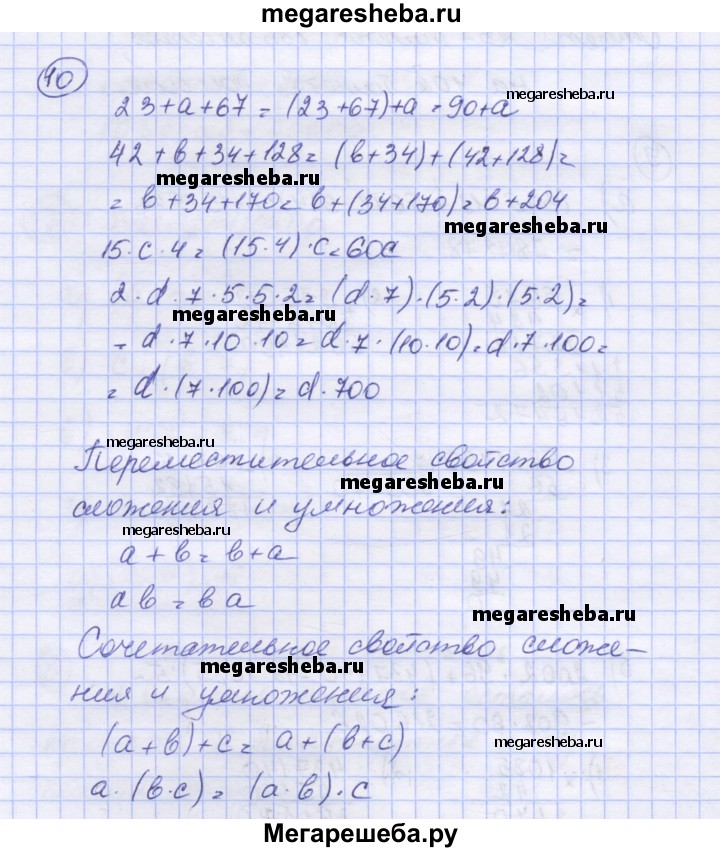 megaresheba.ru
10
23+a+67 = (23+67)+a = 90+a
megaresheba.ru
42+b+34+128 = (b+34)+(42+128) =
megaresheba.ru
= b+34+170 = b+(34+170) = b+204
megaresheba.ru
15·c·4 = (15·4)·c = 60c
2·d·7·5·5·2 = (d·7)·(5·2)·(5·2) =
megaresheba.ru
= d·7·10·10 = d·7·(10·10) = d·7·100 =
megaresheba.ru
= d·(7·100) = d·700
megaresheba.ru
Переместительное свойство
megaresheba.ru
сложения и умножения:
megaresheba.ru
a+b = b+a
ab = ba
megaresheba.ru
Сочетательное свойство сложе-
megaresheba.ru
ния и умножения:
(a+b)+c = a+(b+c)
megaresheba.ru
a·(b·c) = (a·b)·c
Мегарешеба.ру